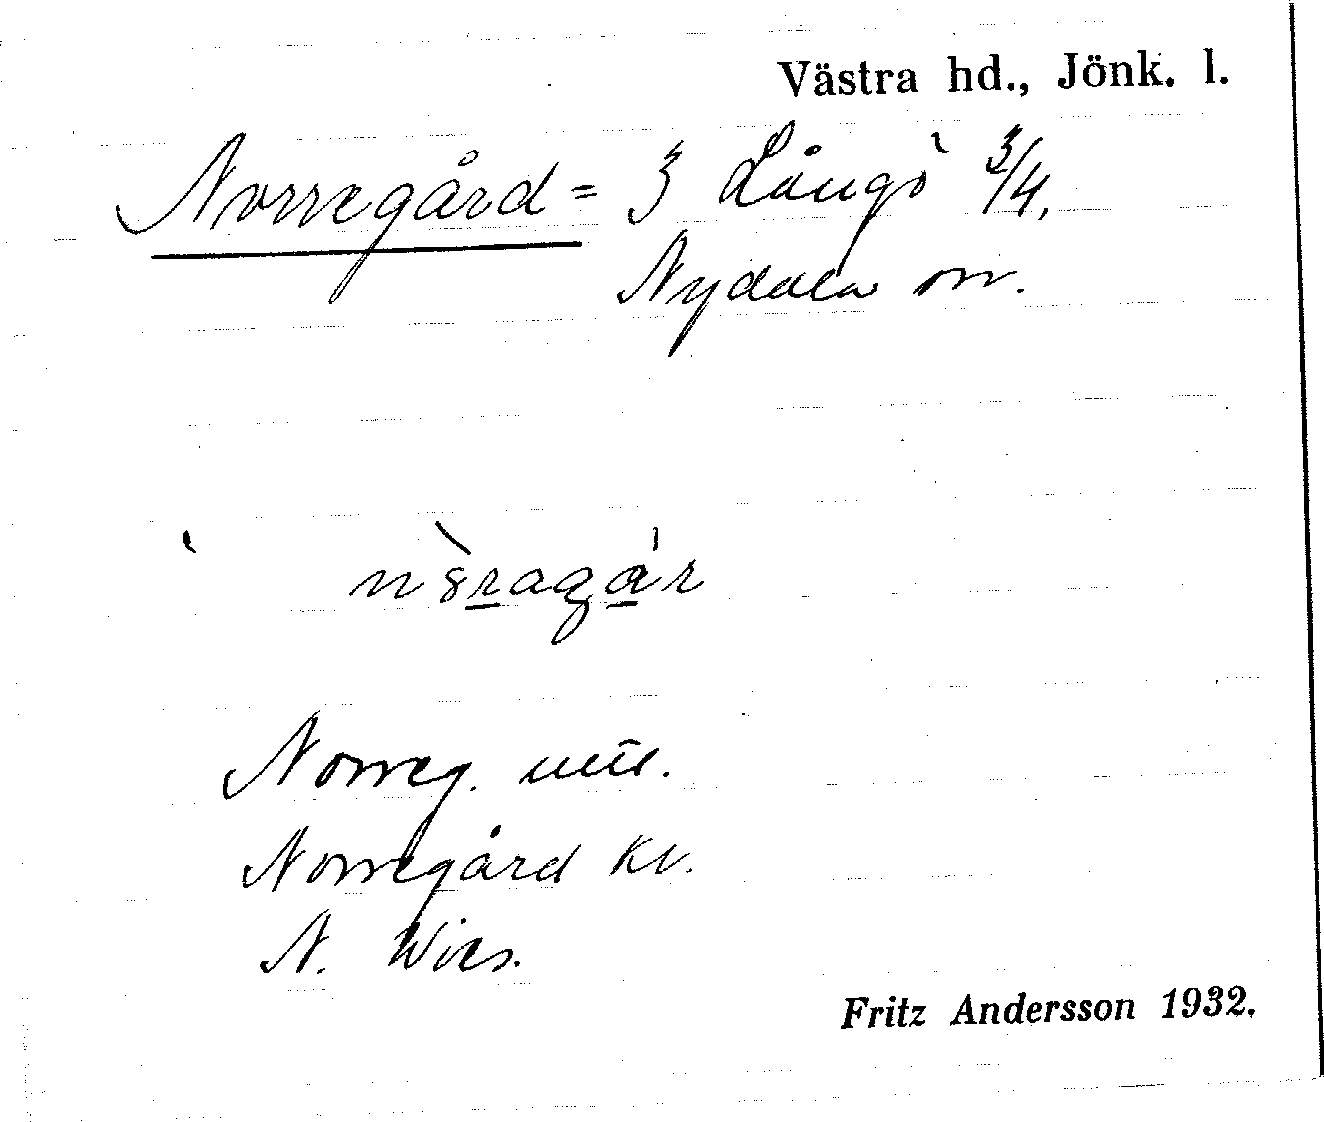 Västra hd., Jönk. l.
Norregård = 3 Långö 3/4,
Nydala sn.
Norreg.
Norregård
N. Wies.
Fritz Andersson 1932.